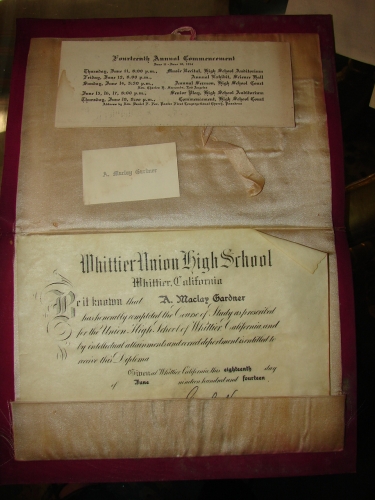 Fourteenth Annual Commencement
June 11 - June 18, 1914
Thursday, June 11, 8:00 p.m., Music Recital, High School Auditorium
Friday, June 12, 8:00 p.m., Annual Exhibit, Science Hall
Sunday, June 14, 3:30 p.m., Annual Sermon, High School Court
Rev. Charles Los Angeles
June 15, 16, 17, 8:00 p.m., Senior Play, High School Auditorium
Thursday, June 18, p.m., Commencement, High School Court
Address by Rev. Daniel F. Fox, Pastor First Congregational Church, Pasadena
A. Maclay Gardner
Whittier Union High School
Whittier, California
Be it known that A. Maclay Gardner
has honorably completed the Course of Study as prescribed
for the Union High School of Whittier California, and
by intellectual attainments and moral deportment is entitled to
receive this Diploma
Given at Whittier California this eighteenth day
of June nineteen hundred and fourteen